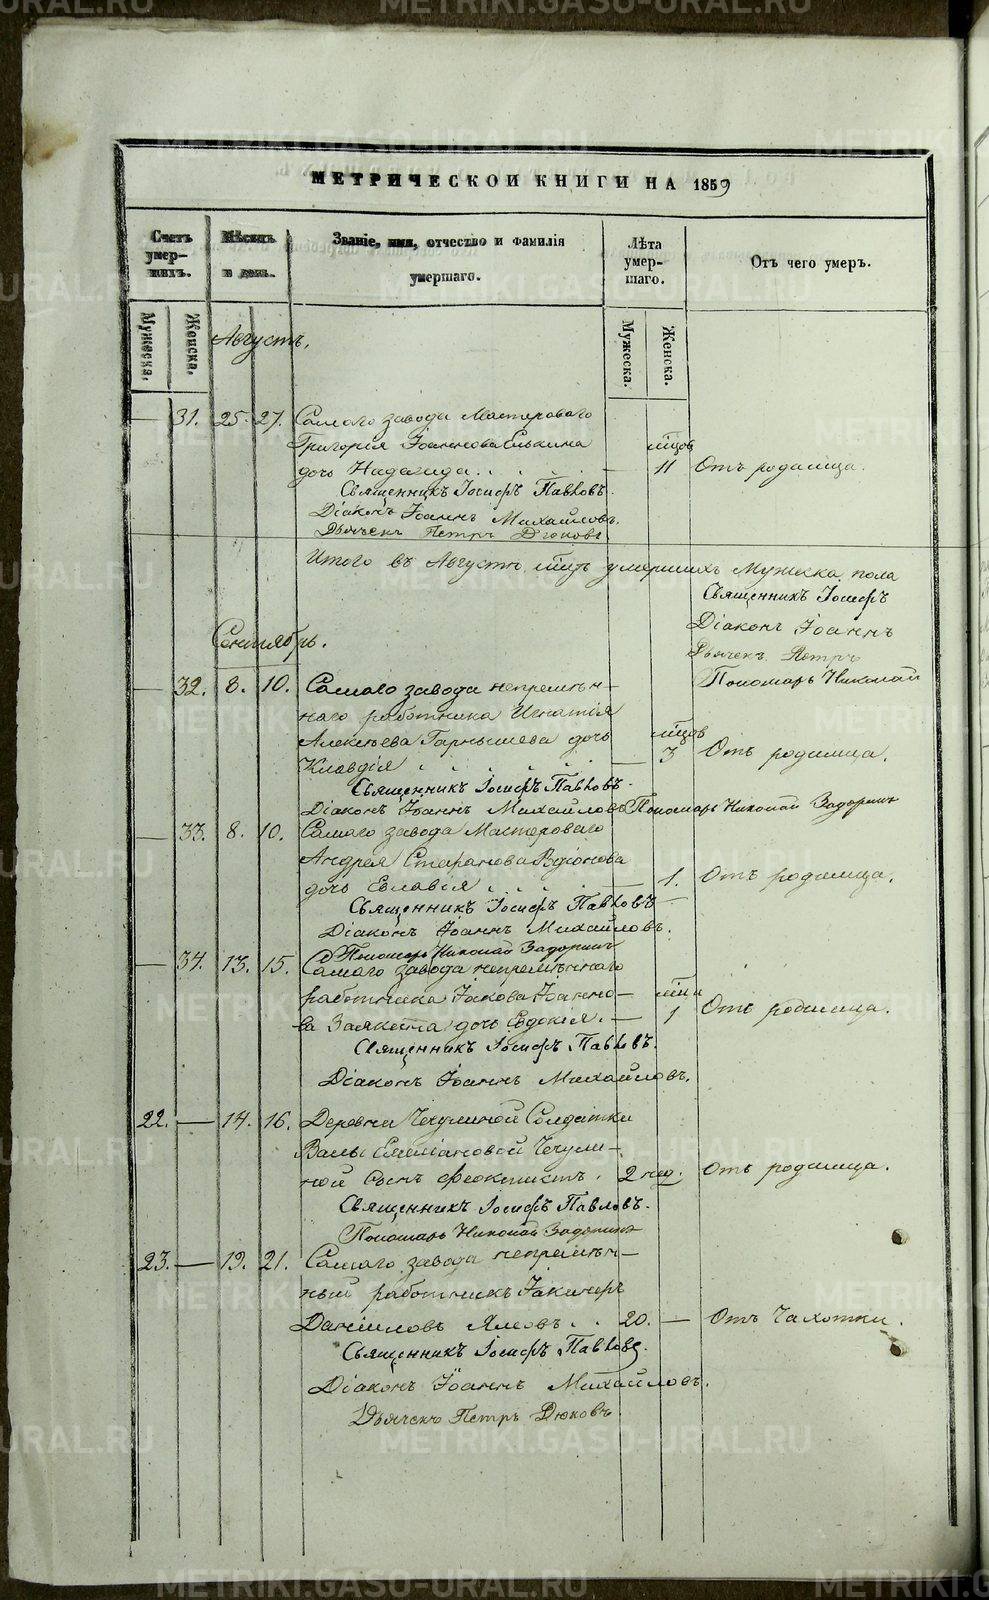 МЕТРИЧЕСКОЙ КНИГИ НА 1859
Счетъ умер-шихъ.
Мѣсяцъ и день.
Званіе, имя, отчество и фамилія умершаго.
Лѣта умер-шаго.
Отъ чего умеръ.
Мужеска.
Женска.
Мужеска.
Женска.
Августъ.
— 31. 25. 27. Самаго завода Мастероваго
Григорія Іоаннова Елькина мцов
дочь Надежда — 11 Отъ родимца.
Священникъ Іосифъ Павловъ.
Діаконъ Іоаннъ Михайловъ.
Дьячекъ Петръ Дюковъ
Итого въ Августѣ мцѣ умершихъ Мужеска пола
Священникъ Іосифъ
Діаконъ Іоаннъ
Дьячекъ Петръ
Пономарь Николай
Сентябрь.
— 32. 8. 10. Самаго завода непремѣн-
наго работника Игнатія
Алексѣева Гарнышева дочь мцов
Клавдія — 3 Отъ родимца.
Священникъ Іосифъ Павловъ.
Діаконъ Іоаннъ Михайловъ Пономарь Николай Задоринъ
— 33. 8. 10. Самаго завода Мастероваго
Андрея
дочь — 1. Отъ родимца.
Священникъ Іосифъ Павловъ
Діаконъ Іоаннъ Михайловъ.
Пономарь Николай Задоринъ
— 34. 13. 15. Самаго завода непремѣннаго
работника Іакова Іоанно-
ва дочь Евдокія. — 1 Отъ родимца.
Священникъ Іосифъ Павловъ.
Діаконъ Іоаннъ Михайловъ.
22. — 14. 16. Деревни Чечулиной Солдатки
Емеліановой Чечули-
ной сынъ Феоктистъ. 2 нед. Отъ родимца.
Священникъ Іосифъ Павловъ.
Пономарь Николай Задоринъ
23. — 19. 21. Самаго завода непремѣн-
ный работникъ Іакинфъ
Даніиловъ 20. — Отъ Чахотки.
Священникъ Іосифъ Павловъ.
Діаконъ Іоаннъ Михайловъ.
Дьячекъ Петръ Дюковъ
METRIKI.GASO-URAL.RU